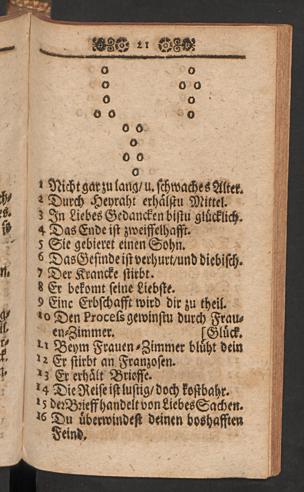 21
1 Nicht gar zu lang / u. schwaches Alter.
2 Durch Heyraht erhälstu Mittel.
3 In Liebes Gedancken bistu glücklich.
4 Das Ende ist zweiffelhafft.
5 Sie gebieret einen Sohn.
6 Das Gesinde ist verhurt / und diebisch.
7 Der Krancke stirbt.
8 Er bekomt seine Liebste.
9 Eine Erbschafft wird dir zu theil.
10 Den Proceß gewinstu durch Frau-
en-Zimmer. [Glück.
11 Beym Frauen-Zimmer blüht dein
12 Er stirbt an Franzosen.
13 Er erhält Brieffe.
14 Die Reise ist lustig / doch kostbahr.
15 der Brieff handelt von Liebes Sachen.
16 Du überwindest deinen boshafften
Feind.